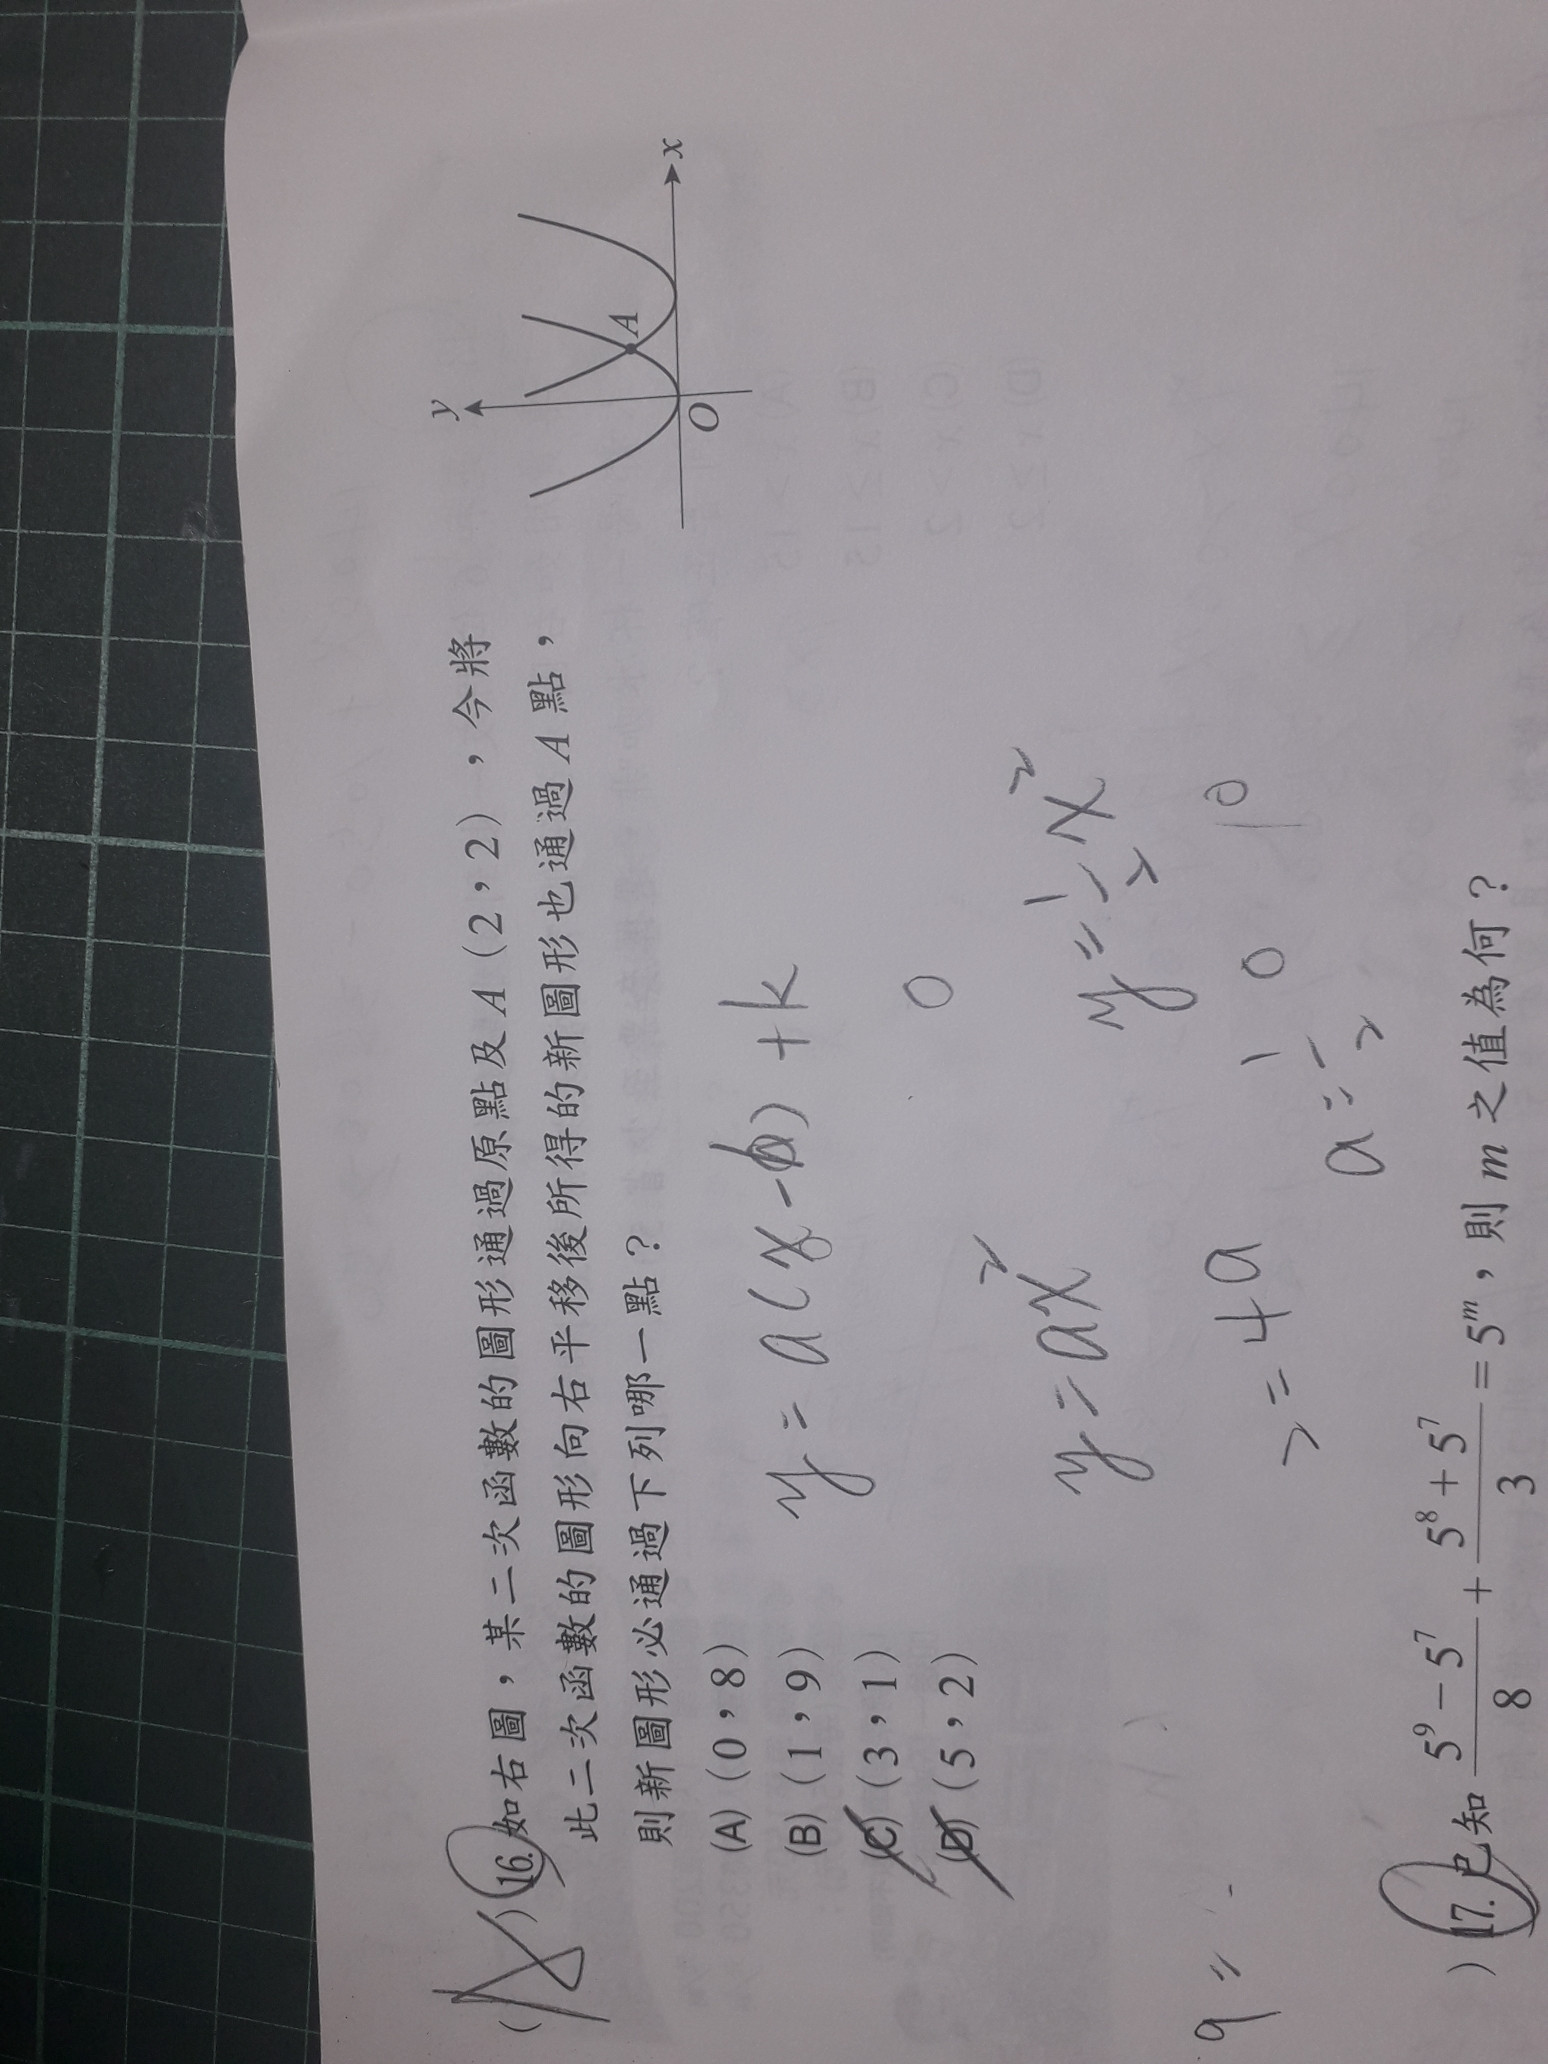 16. 如右圖，某二次函數的圖形通過原點及 A (2，2)，今將
此二次函數的圖形向右平移後所得的新圖形也通過 A 點，
則新圖形必通過下列哪一點？
(A) (0，8)
(B) (1，9)
(C) (3，1)
(D) (5，2)
y
A
O
x
y = a(x - h) + k
0
y = ax²
y = 1/2 x²
2 = 4a
a = 1/2
1 0
10
9 =
) 17. 已知 (5⁹ - 5⁷)/8 + (5⁸ + 5⁷)/3 = 5ᵐ，則 m 之值為何？